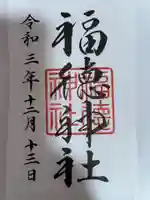 福徳神社
令和三年十二月十三日